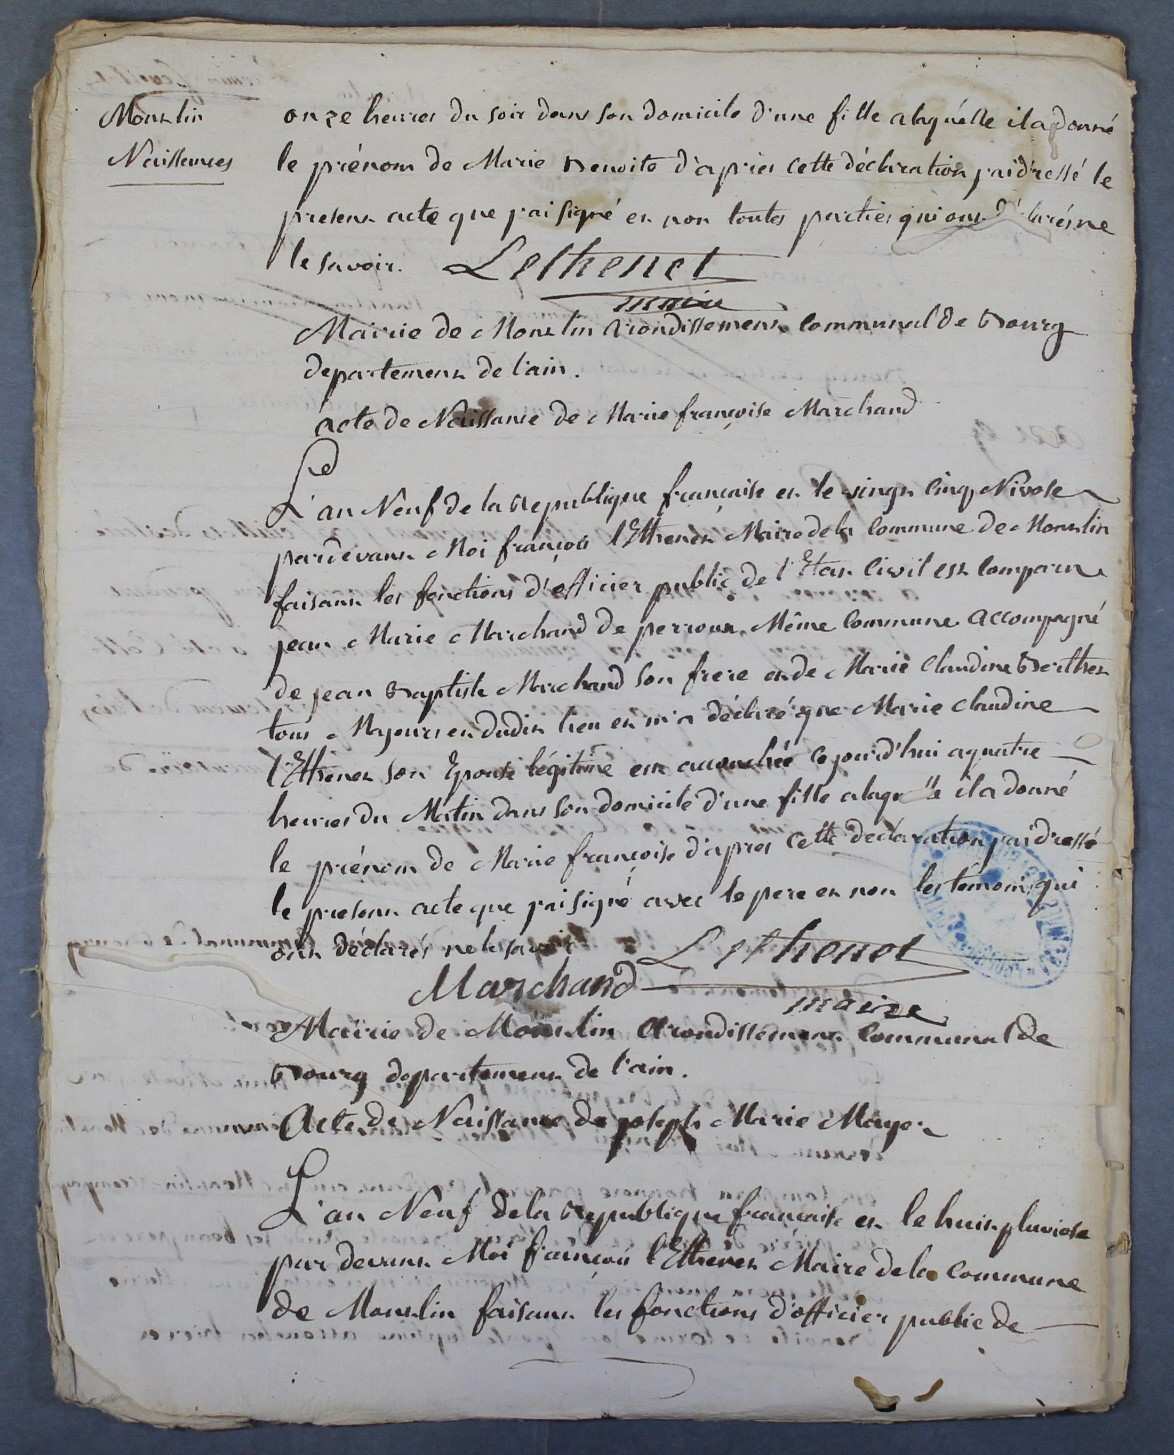 Montlin
Naissances
onze heures du soir dans son domicile d'une fille alaquelle il a donné
le prénom de Marie Benoite d'après cette déclaration j'ai dressé le
present acte que j'ai signé et non toutes parties qui ont déclarés ne
le savoir. Lethenet
maire
Mairie de Montlin arondissement Communal de Bourg
departement de l'ain.
acte de Naissance de Marie françoise Marchand
L'an Neuf de la republique française et le vingt Cinq Nivose
pardevant Moi françois l'Ethenet Maire de la Commune de Montlin
faisant les fonctions d'officier public de l'Etat Civil est Comparu
jean Marie Marchand de perroux Même Commune accompagné
de jean Baptiste Marchand son frere et de Marie Claudine Berthet
tous Majeurs et dudit lieu et m'a déclaré que Marie claudine
l'Ethenet son Epouse légitime est accouchée cejourd'hui a quatre
heures du Matin dans son domicile d'une fille alaquelle il a donné
le prénom de Marie françoise d'apres cette declaration j'ai dressé
le present acte que j'ai signé avec le pere et non les témoins qui
ont déclarés ne le savoir Lethenet
Marchand maire
Mairie de Montlin Arondissement Communal de
Bourg departement de l'ain.
Acte de Naissance de joseph Marie Mayet
L'an Neuf de la republique française et le huit pluviose
par devant Moi françois l'Ethenet Maire de la Commune
de Montlin faisant les fonctions d'officier public de